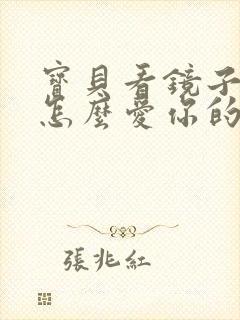 寶貝看鏡子
怎麼愛你的
張兆紅